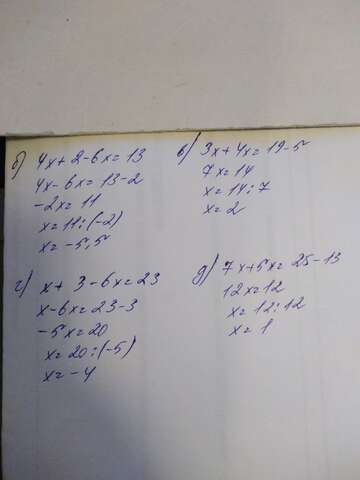 б) 4x+2-6x=13
4x-6x=13-2
-2x=11
x=11:(-2)
x=-5,5
в) 3x+4x=19-5
7x=14
x=14:7
x=2
г) x+3-6x=23
x-6x=23-3
-5x=20
x=20:(-5)
x=-4
д) 7x+5x=25-13
12x=12
x=12:12
x=1